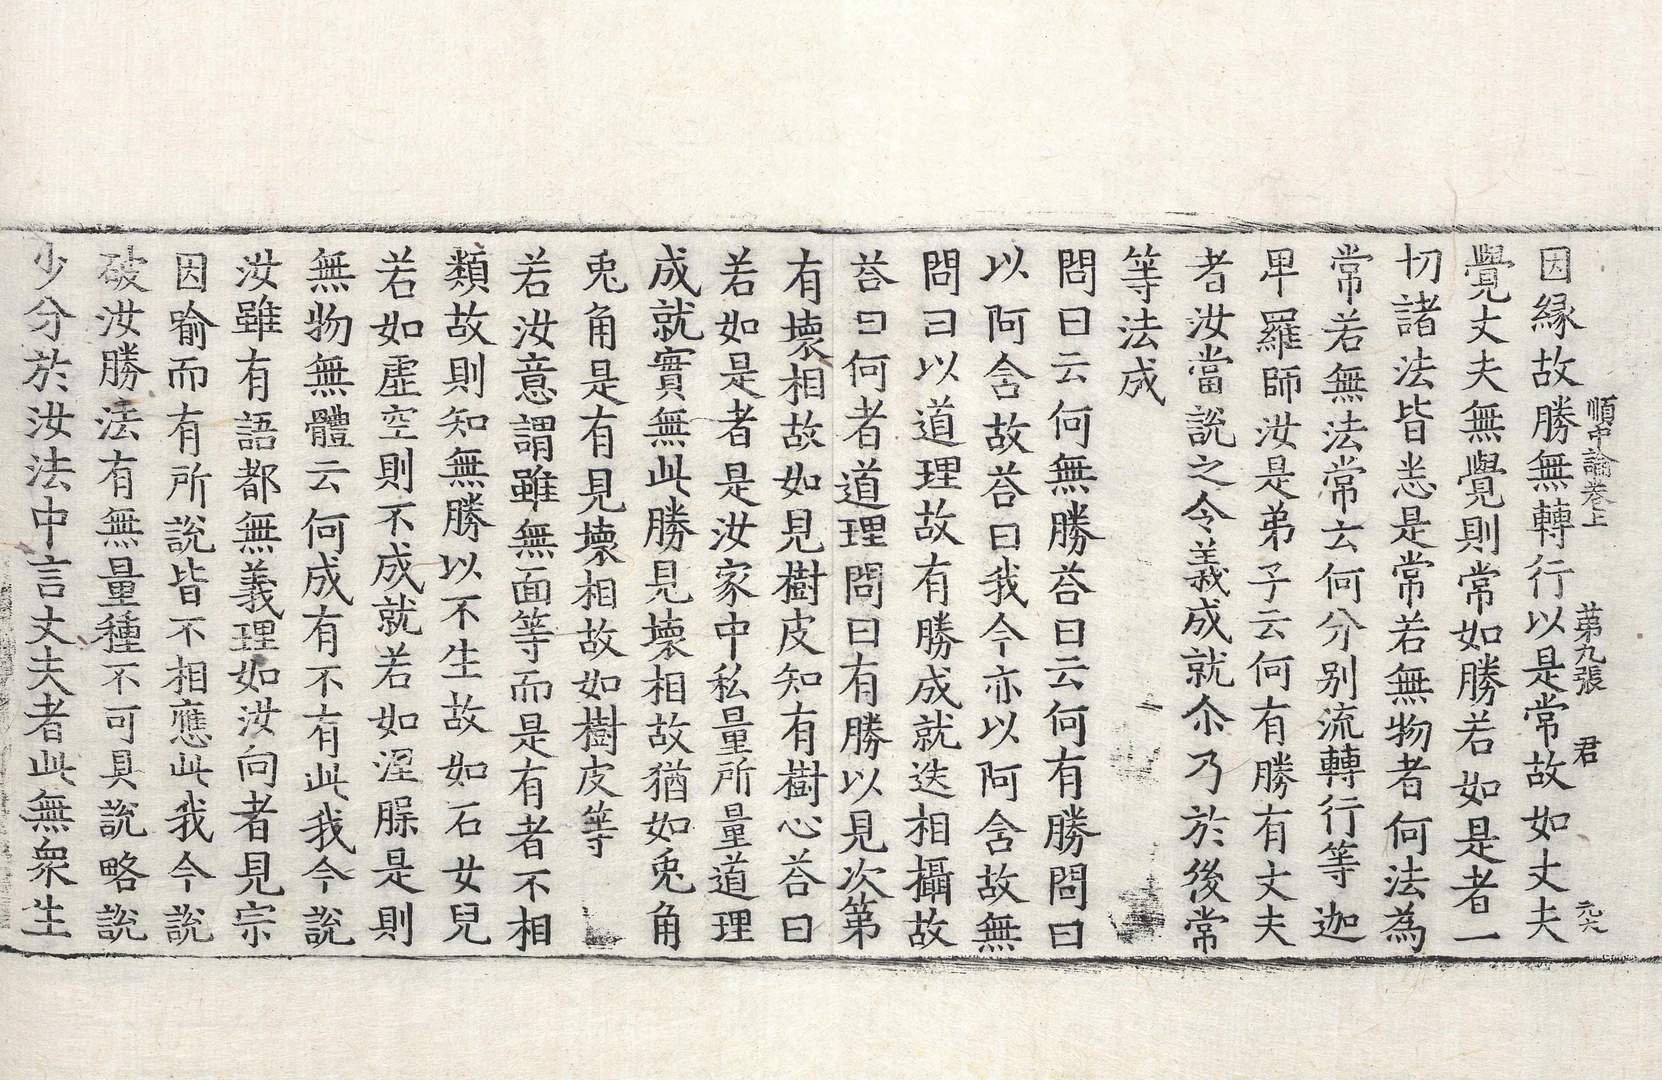 順中論卷上　第九張　君
因縁故勝無轉行以是常故如丈夫
覺丈夫無覺則常如勝若如是者一
切諸法皆悉是常若無物者何法為
常若無法常云何分别流轉行等迦
毘羅師汝是弟子云何有勝有丈夫
者汝當説之令義成就尒乃於後常
等法成
問曰云何無勝荅曰云何有勝問曰
以阿含故荅曰我今亦以阿含故無
問曰以道理故有勝成就迭相攝故
荅曰何者道理問曰有勝以見次第
有壞相故如見樹皮知有樹心荅曰
若如是者是汝家中私量所量道理
成就實無此勝見壞相故猶如兎角
兎角是有見壞相故如樹皮等
若汝意謂雖無面等而是有者不相
類故則知無勝以不生故如石女兒
若如虚空則不成就若如涅槃是則
無物無體云何成有不有此我今説
汝雖有語都無義理如汝向者見宗
因喻而有所説皆不相應此我今説
破汝勝法有無量種不可具説略説
少分於汝法中言丈夫者此無衆生